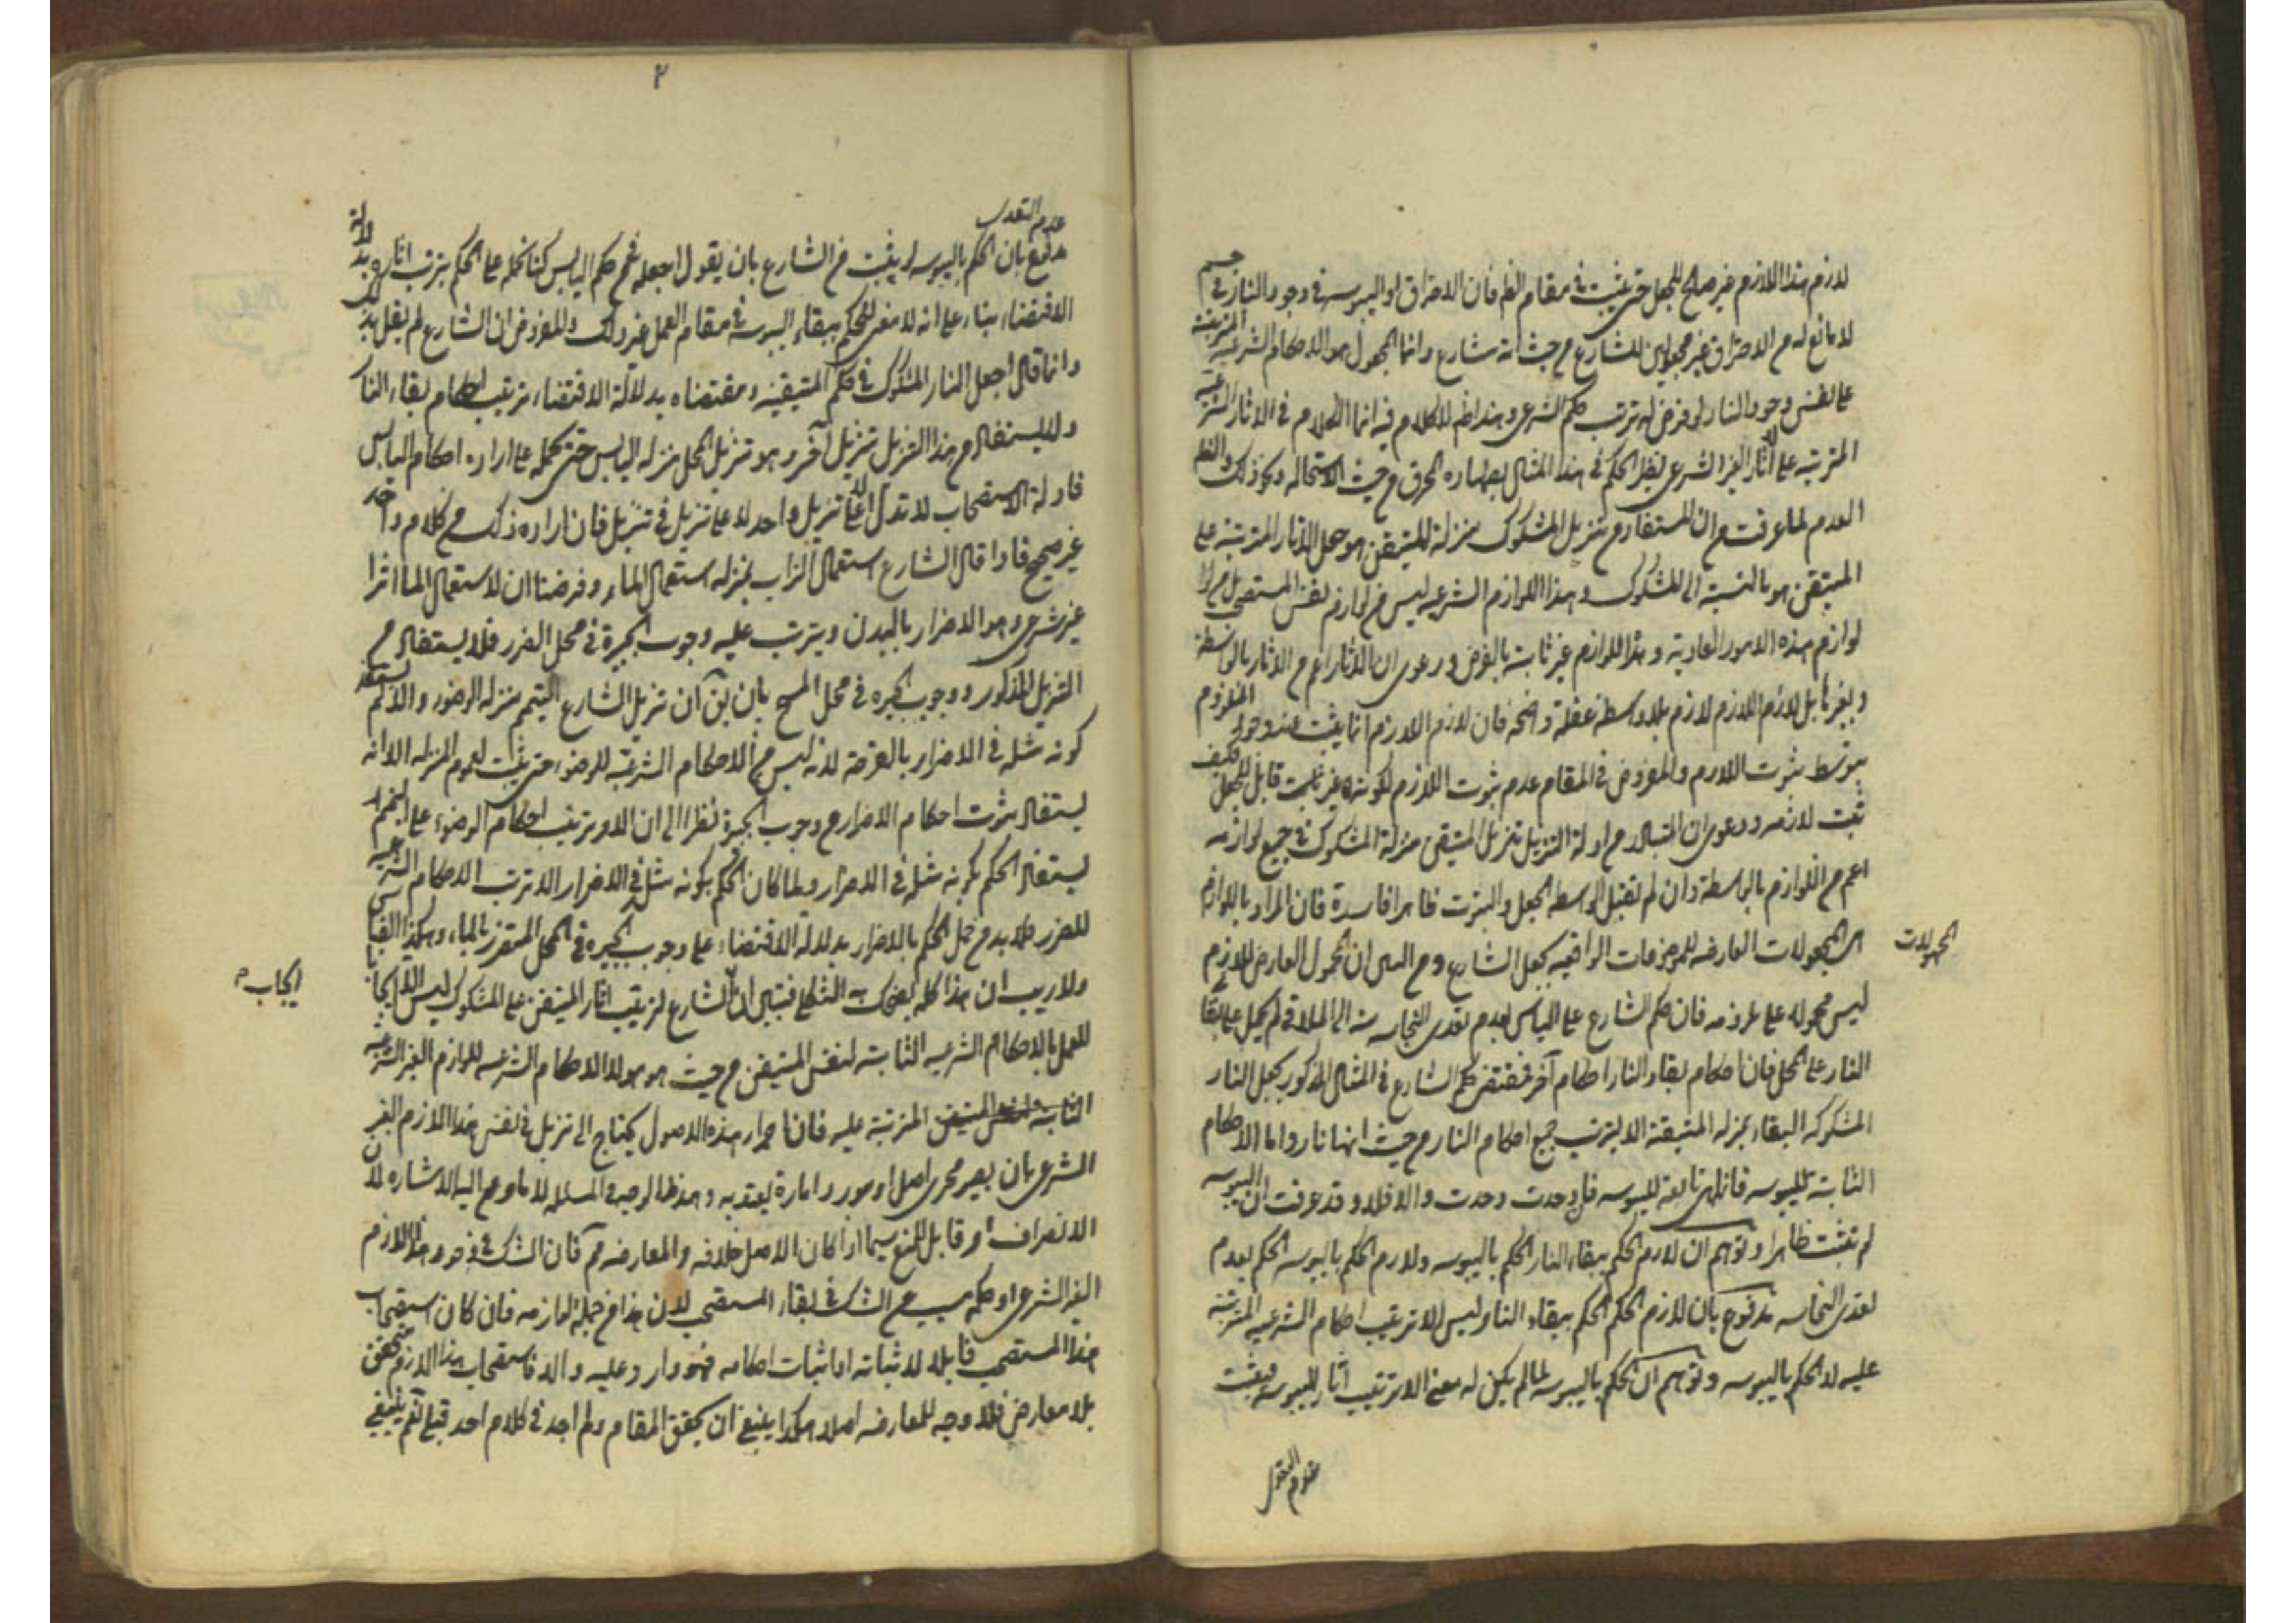 لازم هذا اللازم غير صالح للجعل حتى يثبت في مقام الظاهر فان الاحتراق او اليبوسة في وجود النار في جسم
لا مانع له من الاحتراق غير مجعولين للشارع من حيث انه شارع وانما المجعول هو الاحكام الشرعية المترتبة
على نفس وجود النار لو فرض له ترتب حكم الشرعي وهذا ظاهر لا كلام فيه انما الكلام في الاثار الشرعية
المترتبة على آثار الغير الشرعي نظير الحكم في هذا المثال بطهارة المحرق من حيث الاستحالة ونحو ذلك والظاهر
العدم لما عرفت من ان المستفاد من تنزيل المشكوك منزلة المتيقن هو جعل الاثار المترتبة على
المتيقن هو بالنسبة الى المشكوك وهذا اللوازم الشرعية ليس من لوازم نفس المستصحب بل من
لوازم هذه الامور العادية وهذا اللوازم غير ثابتة بالفرض ودعوى ان الاثار اعم من الاثار بالواسطة
وبغيرها بل لازم اللازم لازم بلا واسطة غفلة واضحة فان لازم اللازم انما يثبت عند وجود الملزوم
بتوسط ثبوت اللازم والمفروض في المقام عدم ثبوت اللازم لكونه غير قابل للجعل فكيف
ثبت لازمه ودعوى ان المتبادر من ادلة التنزيل تنزيل المتيقن منزلة المشكوك في جميع لوازمه
اعم من اللوازم بالواسطة وان لم تقبل الواسطة الجعل والثبوت ظاهرا فاسدة فان المراد باللوازم
المجعولات العارضة للموضوعات الواقعية بجعل الشارع ومن البين ان المحمول العارض للازم
المجعولات
ليس محموله على ملزومه فان حكم الشارع على اليابس بعدم تعدى النجاسة منه الى الملاقي لم يحمل على بقاء
النار على المحل فان احكام بقاء النار احكام آخر فمقتضى حكم الشارع في المثال المذكور بجعل النار
المشكوكة البقاء بمنزلة المتيقنة الا يترتب جميع احكام النار من حيث انها نار واما الاحكام
الثابتة لليبوسة فانما هي تابعة لليبوسة فان وجدت وجدت والا فلا وقد عرفت ان اليبوسة
لم تثبت ظاهرا وتوهم ان لازم الحكم ببقاء النار الحكم باليبوسة ولازم الحكم باليبوسة الحكم بعدم
تعدى النجاسة مدفوع بان لازم الحكم الحكم ببقاء النار ليس الا ترتيب احكام الشرعية المترتبة
عليه لا الحكم باليبوسة وتوهم ان الحكم باليبوسة لما لم يكن له معنى الا ترتيب آثار اليبوسة فيثبت
٢
عدم التعدي
مدفوع بان الحكم باليبوسة لم يثبت من الشارع بان يقول اجعله في حكم اليابس كنا نحمله على الحكم بترتب آثاره بدلالة
الاقتضاء بناء على انه لا معنى للحكم ببقاء اليبوسة في مقام العمل غير ذلك والمفروض ان الشارع لم يقل
وانما قال اجعل النار المشكوك في حكم المتيقنة ومقتضاه بدلالة الاقتضاء ترتيب احكام بقاء النار
ولا يستفاد من هذا التنزيل تنزيل آخر وهو تنزيل المحل منزلة اليابس حتى نحمله على ارادة احكام اليابس
فادلة الاستصحاب لا تدل الا على تنزيل واحد لا على تنزيل في تنزيل فان ارادة ذلك من كلام واحد
غير صحيح فاذا قال الشارع استعمال التراب بمنزلة استعمال الماء وفرضنا ان لاستعمال الماء اثرا
غير شرعي وهو الاضرار بالبدن ويترتب عليه وجوب الجبيرة في محل الضرر فلا يستفاد من
التنزيل المذكور وجوب الجبيرة في محل المسح بان يق ان تنزيل الشارع التيمم منزلة الوضوء
كونه مثله في الاضرار بالقرحة لانه ليس من الاحكام الشرعية للوضوء حتى يثبت لعموم المنزلة الا انه
يستفاد ثبوت احكام الاضرار من وجوب الجبيرة نظرا الى ان الامر بترتيب احكام الوضوء على التيمم
يستفاد الحكم بكونه مثله في الاضرار ولما كان الحكم بكونه مثله في الاضرار الا ترتب الاحكام الشرعية
للضرر فلا بد من حمل الحكم بالاضرار بدلالة الاقتضاء على وجوب الجبيرة في المحل المتضرر بالماء وهكذا القياس
ولا ريب ان هذا كله يضحك به الثكلى فتبين ان الشارع لترتيب آثار المتيقن على المشكوك ليس الا
ايجاب
العمل بالاحكام الشرعية الثابتة لنفس المتيقن من حيث هو هو لا الاحكام الشرعية للوازم الغير الشرعية
الثابتة المترتبة عليه فان اجراء هذه الاصول يحتاج الى تنزيل في نفس هذا اللازم الغير
الشرعي بان يصير مجرى اصل او مورد امارة يعتد به وهذا هو الوجه في المسئلة لا ما وقع اليه الاشارة لان
الانصراف امر قابل للمنع سيما اذا كان الاصل خلافه والمعارضة فان الشك في وجود هذا اللازم
الغير الشرعي او حكمه مسبب عن الشك في بقاء المستصحب لان هذا من جملة لوازمه فان كان استصحاب
هذا المستصحب قابلا لاثباته او اثبات احكامه فهو وارد عليه والا فاستصحاب هذا اللازم متحقق
بلا معارض فلا وجه للمعارضة اصلا هكذا ينبغي ان يحقق المقام ولم اجد في كلام احد قبلي نعم ينبغي